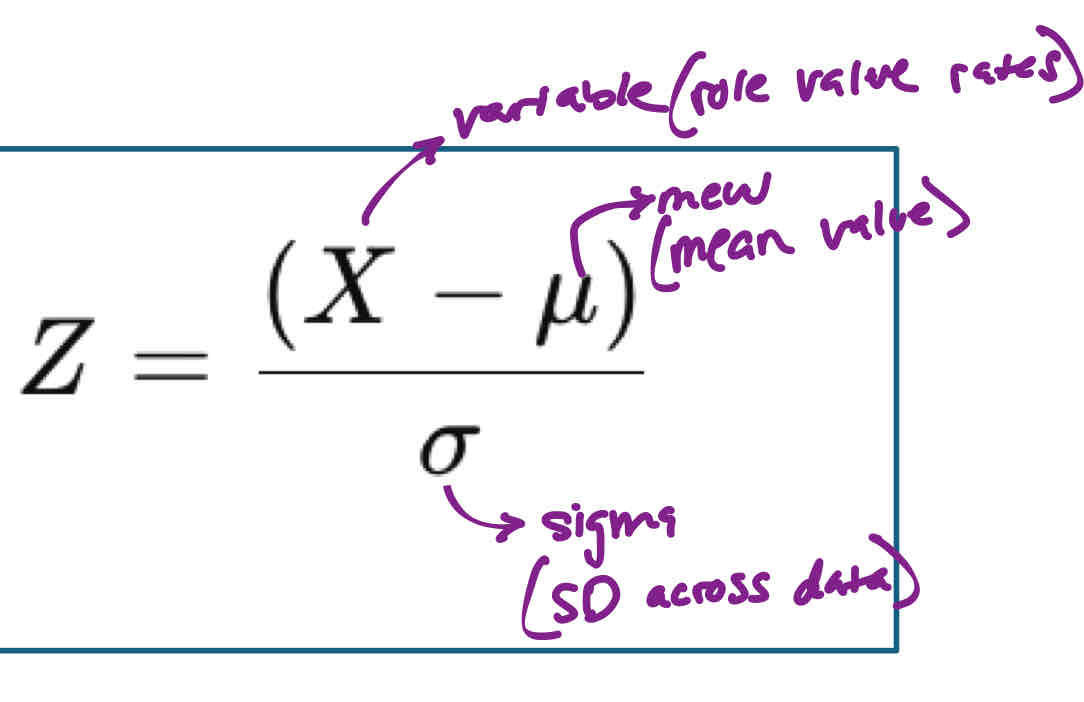 variable (role value rates)
mew
(mean value)
Z = (X − μ) / σ
sigma
(SD across data)